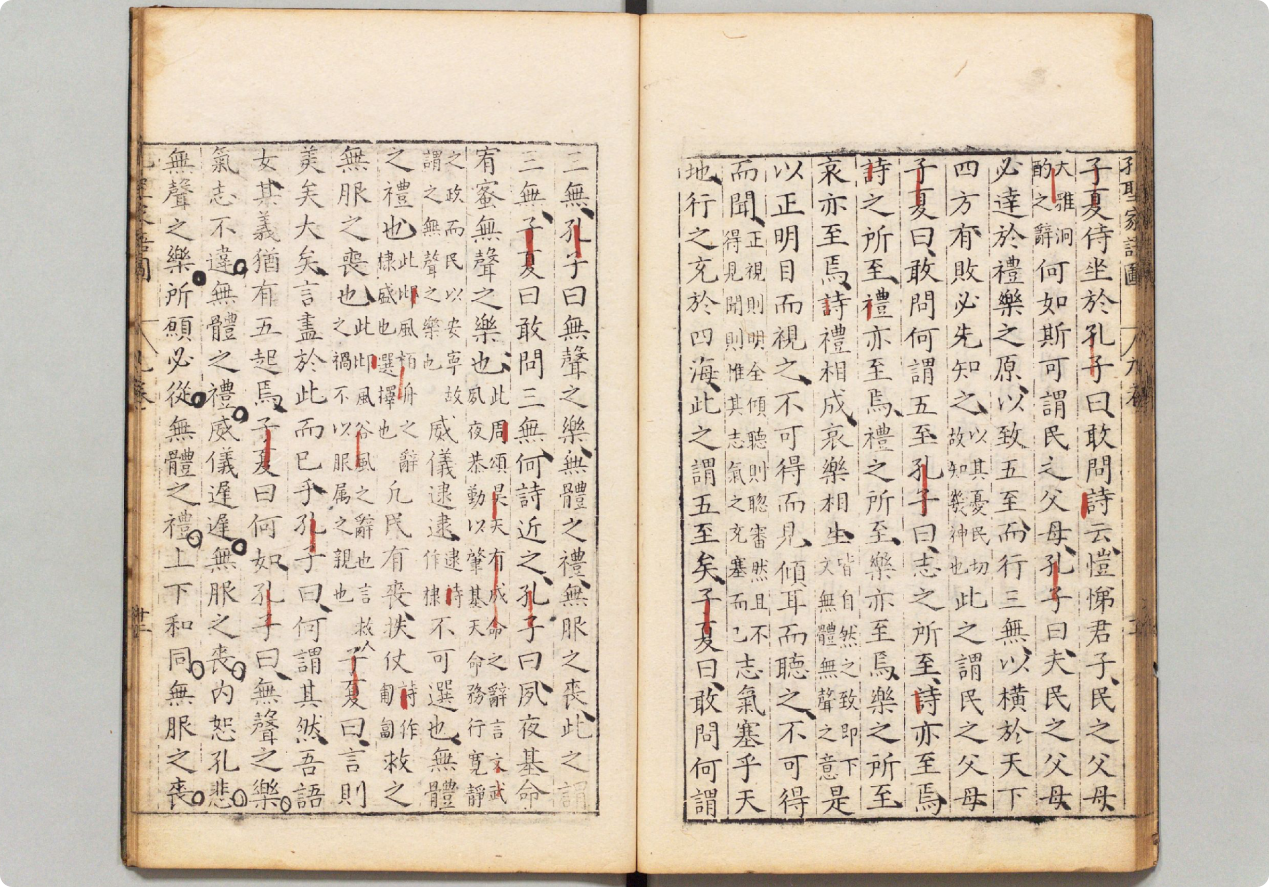 孔聖家語圖
子夏侍坐於孔子曰敢問詩云愷悌君子民之父母
大雅泂酌之辭何如斯可謂民之父母孔子曰夫民之父母
必達於禮樂之原以致五至而行三無以橫於天下
四方有敗必先知之以其憂民切故知幾神也此之謂民之父母
子夏曰敢問何謂五至孔子曰志之所至詩亦至焉
詩之所至禮亦至焉禮之所至樂亦至焉樂之所至
哀亦至焉詩禮相成哀樂相生皆自然之致即下文無體無聲之意是
以正明目而視之不可得而見傾耳而聽之不可得
而聞正視則明全傾聽則聦審然且不得見聞則惟其志氣之充塞而已志氣塞乎天
地行之充於四海此之謂五至矣子夏曰敢問何謂
三無孔子曰無聲之樂無體之禮無服之喪此之謂
三無子夏曰敢問三無何詩近之孔子曰夙夜基命
宥密無聲之樂也此周頌昊天有成命之辭言文武夙夜恭勤以肇基天命務行寛靜
之政而民以安寧故謂之無聲之樂也威儀逮逮逮詩作棣不可選也無體
之禮也此邶風栢舟之辭棣威也選擇也凡民有喪扶伏詩作匍匐救之
無服之喪也此邶風谷風之辭也言救人之禍不以服属之親也子夏曰言則
美矣大矣言盡於此而已乎孔子曰何謂其然吾語
女其義猶有五起焉子夏曰何如孔子曰無聲之樂
氣志不違無體之禮威儀遲遲無服之喪内恕孔悲
無聲之樂所願必從無體之禮上下和同無服之喪